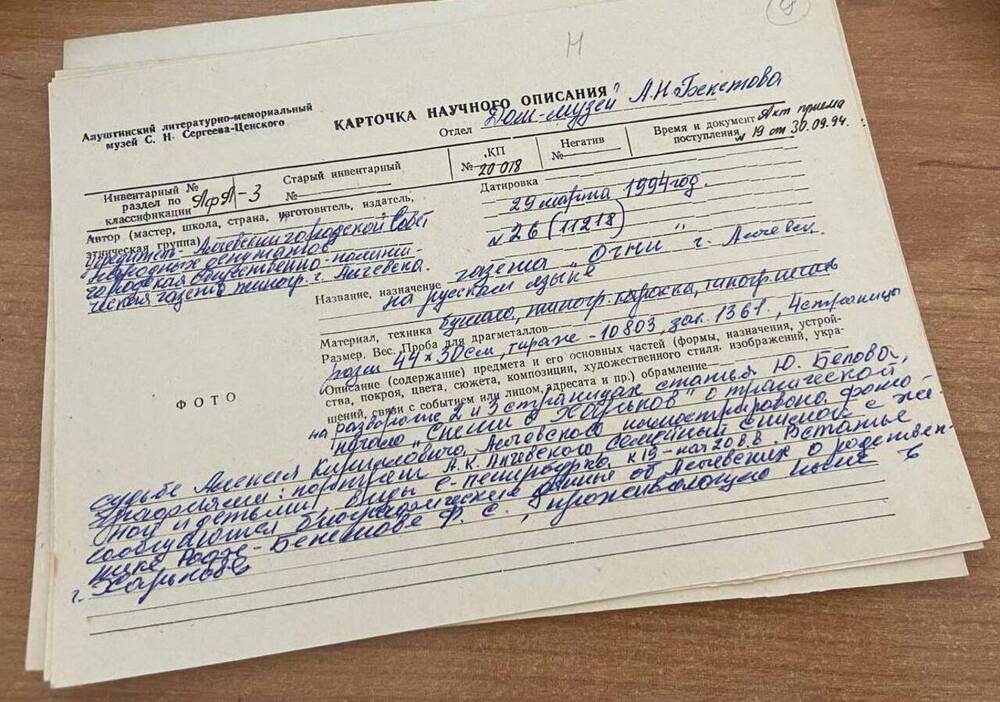 Н
Алуштинский литературно-мемориальный
музей С. Н. Сергеева-Ценского
КАРТОЧКА НАУЧНОГО ОПИСАНИЯ
Отдел Дом-музей А.Н. Бекетова
Инвентарный №
раздел по
классификации АфЛ-3
Старый инвентарный
№
КП
№ 20 018
Негатив
№
Время и документ Акт приема
поступления № 19 от 30.09.94г.
Автор (мастер, школа, страна, изготовитель, издатель,
этническая группа)
Алчевский городской Совет
народных депутатов
городская общественно-полити-
ческая газета типогр. г. Алчевска.
Датировка
29 марта 1994 год.
№ 26 (11218)
Название, назначение газета „Огни" г. Алчевск.
на русском языке
Материал, техника Бумага, типогр. краска, типогр. печать
Размер. Вес. Проба для драгметаллов
разм 44 х 30 см, тираж - 10803, зак. 1361, 4 страницы
Описание (содержание) предмета и его основных частей (формы, назначения, устрой-
ства, покроя, цвета, сюжета, композиции, художественного стиля, изображений, укра-
шений, связи с событием или лицом, адресата и пр.) обрамление
ФОТО
на развороте 2 и 3 страницах статья Ю. Белова,
начало „Спеши в Харьков" о трагической
судьбе Алексея Кирилловича, Алчевского иллюстрирована фото-
графиями: портрет А.К. Алчевского семейный снимок с же-
ной и детьми, виды С-Петербурга к 19 - нач 20 в в. В статье
сообщаются биографические данные об Алчевских о родствен-
нике - Бекетове Ф. С., проживающую ныне в
г. Харькове